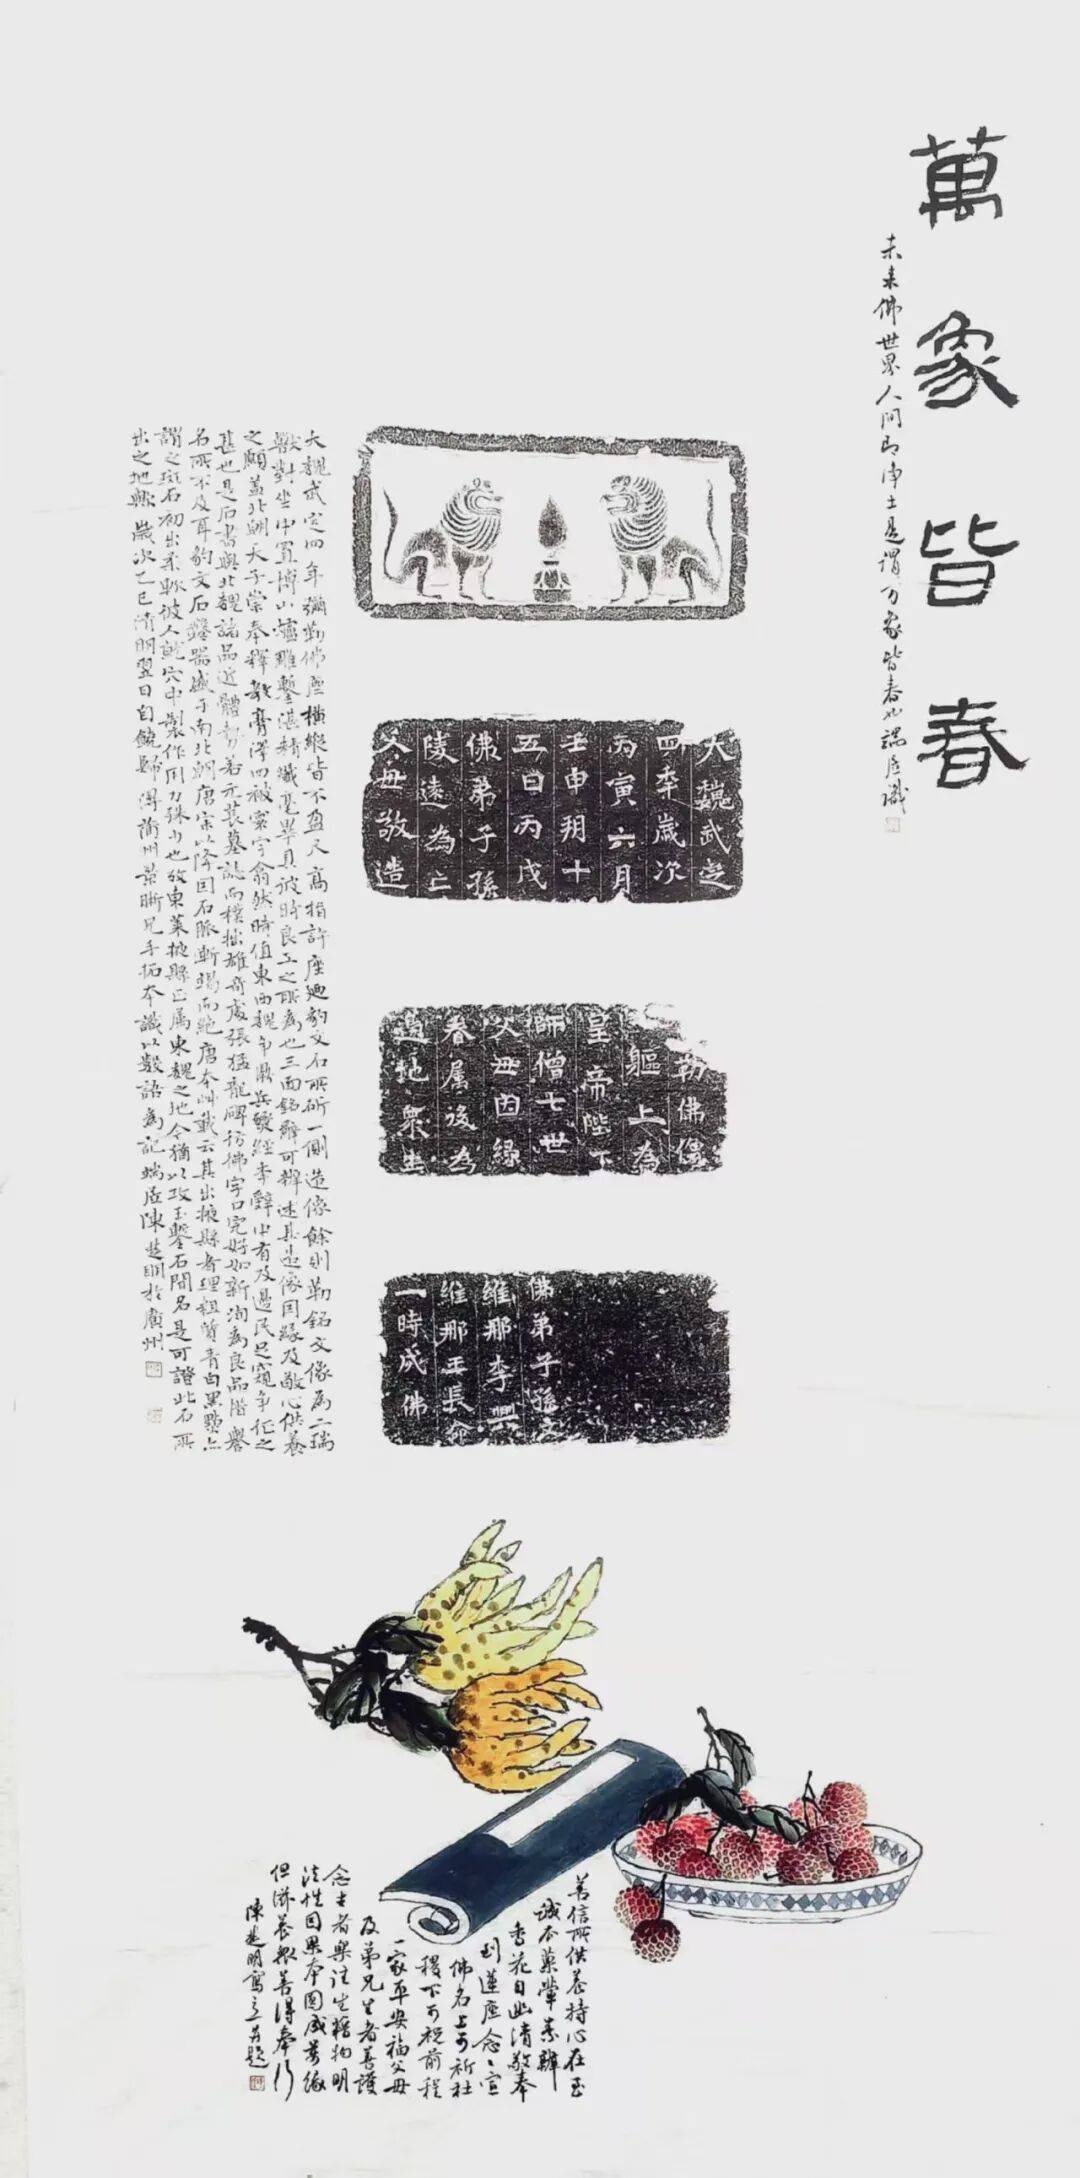 萬象皆春
未来佛世界人间即净土是谓万象皆春也端居識
大魏武定
四年歲次
丙寅六月
壬申朔十
五日丙戌
佛弟子孫
陵遠為亡
父母敬造
勒佛像
軀上為
皇帝陛下
師僧七世
父母因緣
眷属後為
邊地衆生
佛弟子孫文
維那李興
維那王長命
一時成佛
大魏武定四年彌勒佛座橫縱皆不盈尺高指許座廻豹文石所斫一側造像餘則勒銘文像為二瑞
獸對坐中置博山爐雕鏨湛精纖毫畢具彼時良工之所為也三面銘辭可辨述其造像因緣及敬心供養
之願蓋北朝天子崇奉釋教膏澤四被寰宇翕然時值東西魏爭鼎兵燹經年辭中有及邊民足窺爭伐之
甚也是石書與北魏諸品近體勢若元萇墓誌而樸拙雄奇處張猛龍碑彷彿字口完好如新洵為良品階譽
名所不及耳豹文石鑿器盛于南北朝唐宋以降因石脈漸竭而絕唐本艸載云其出掖縣者理粗質青白黑點点
謂之斑石初出柔軟彼人就穴中製作用力殊少也攷東萊掖縣正属東魏之地今猶以攻玉鑿石聞名是可證此石所
出之地歟歲次乙巳清明翌日自饒歸得蘭州景晰兄手拓本識以數語為記端居陳楚明於廣州
若信所供養持心在至
誠不藥葷素辨
香花自幽清敬奉
到蓮座念念宣
佛名上可祈社
稷下可祝前程
一家平安福父母
及弟兄生者善護
念去者樂往生稽物明
法性因果本圆成萬緣
但滋養報善得奉行
陳楚明寫之并題